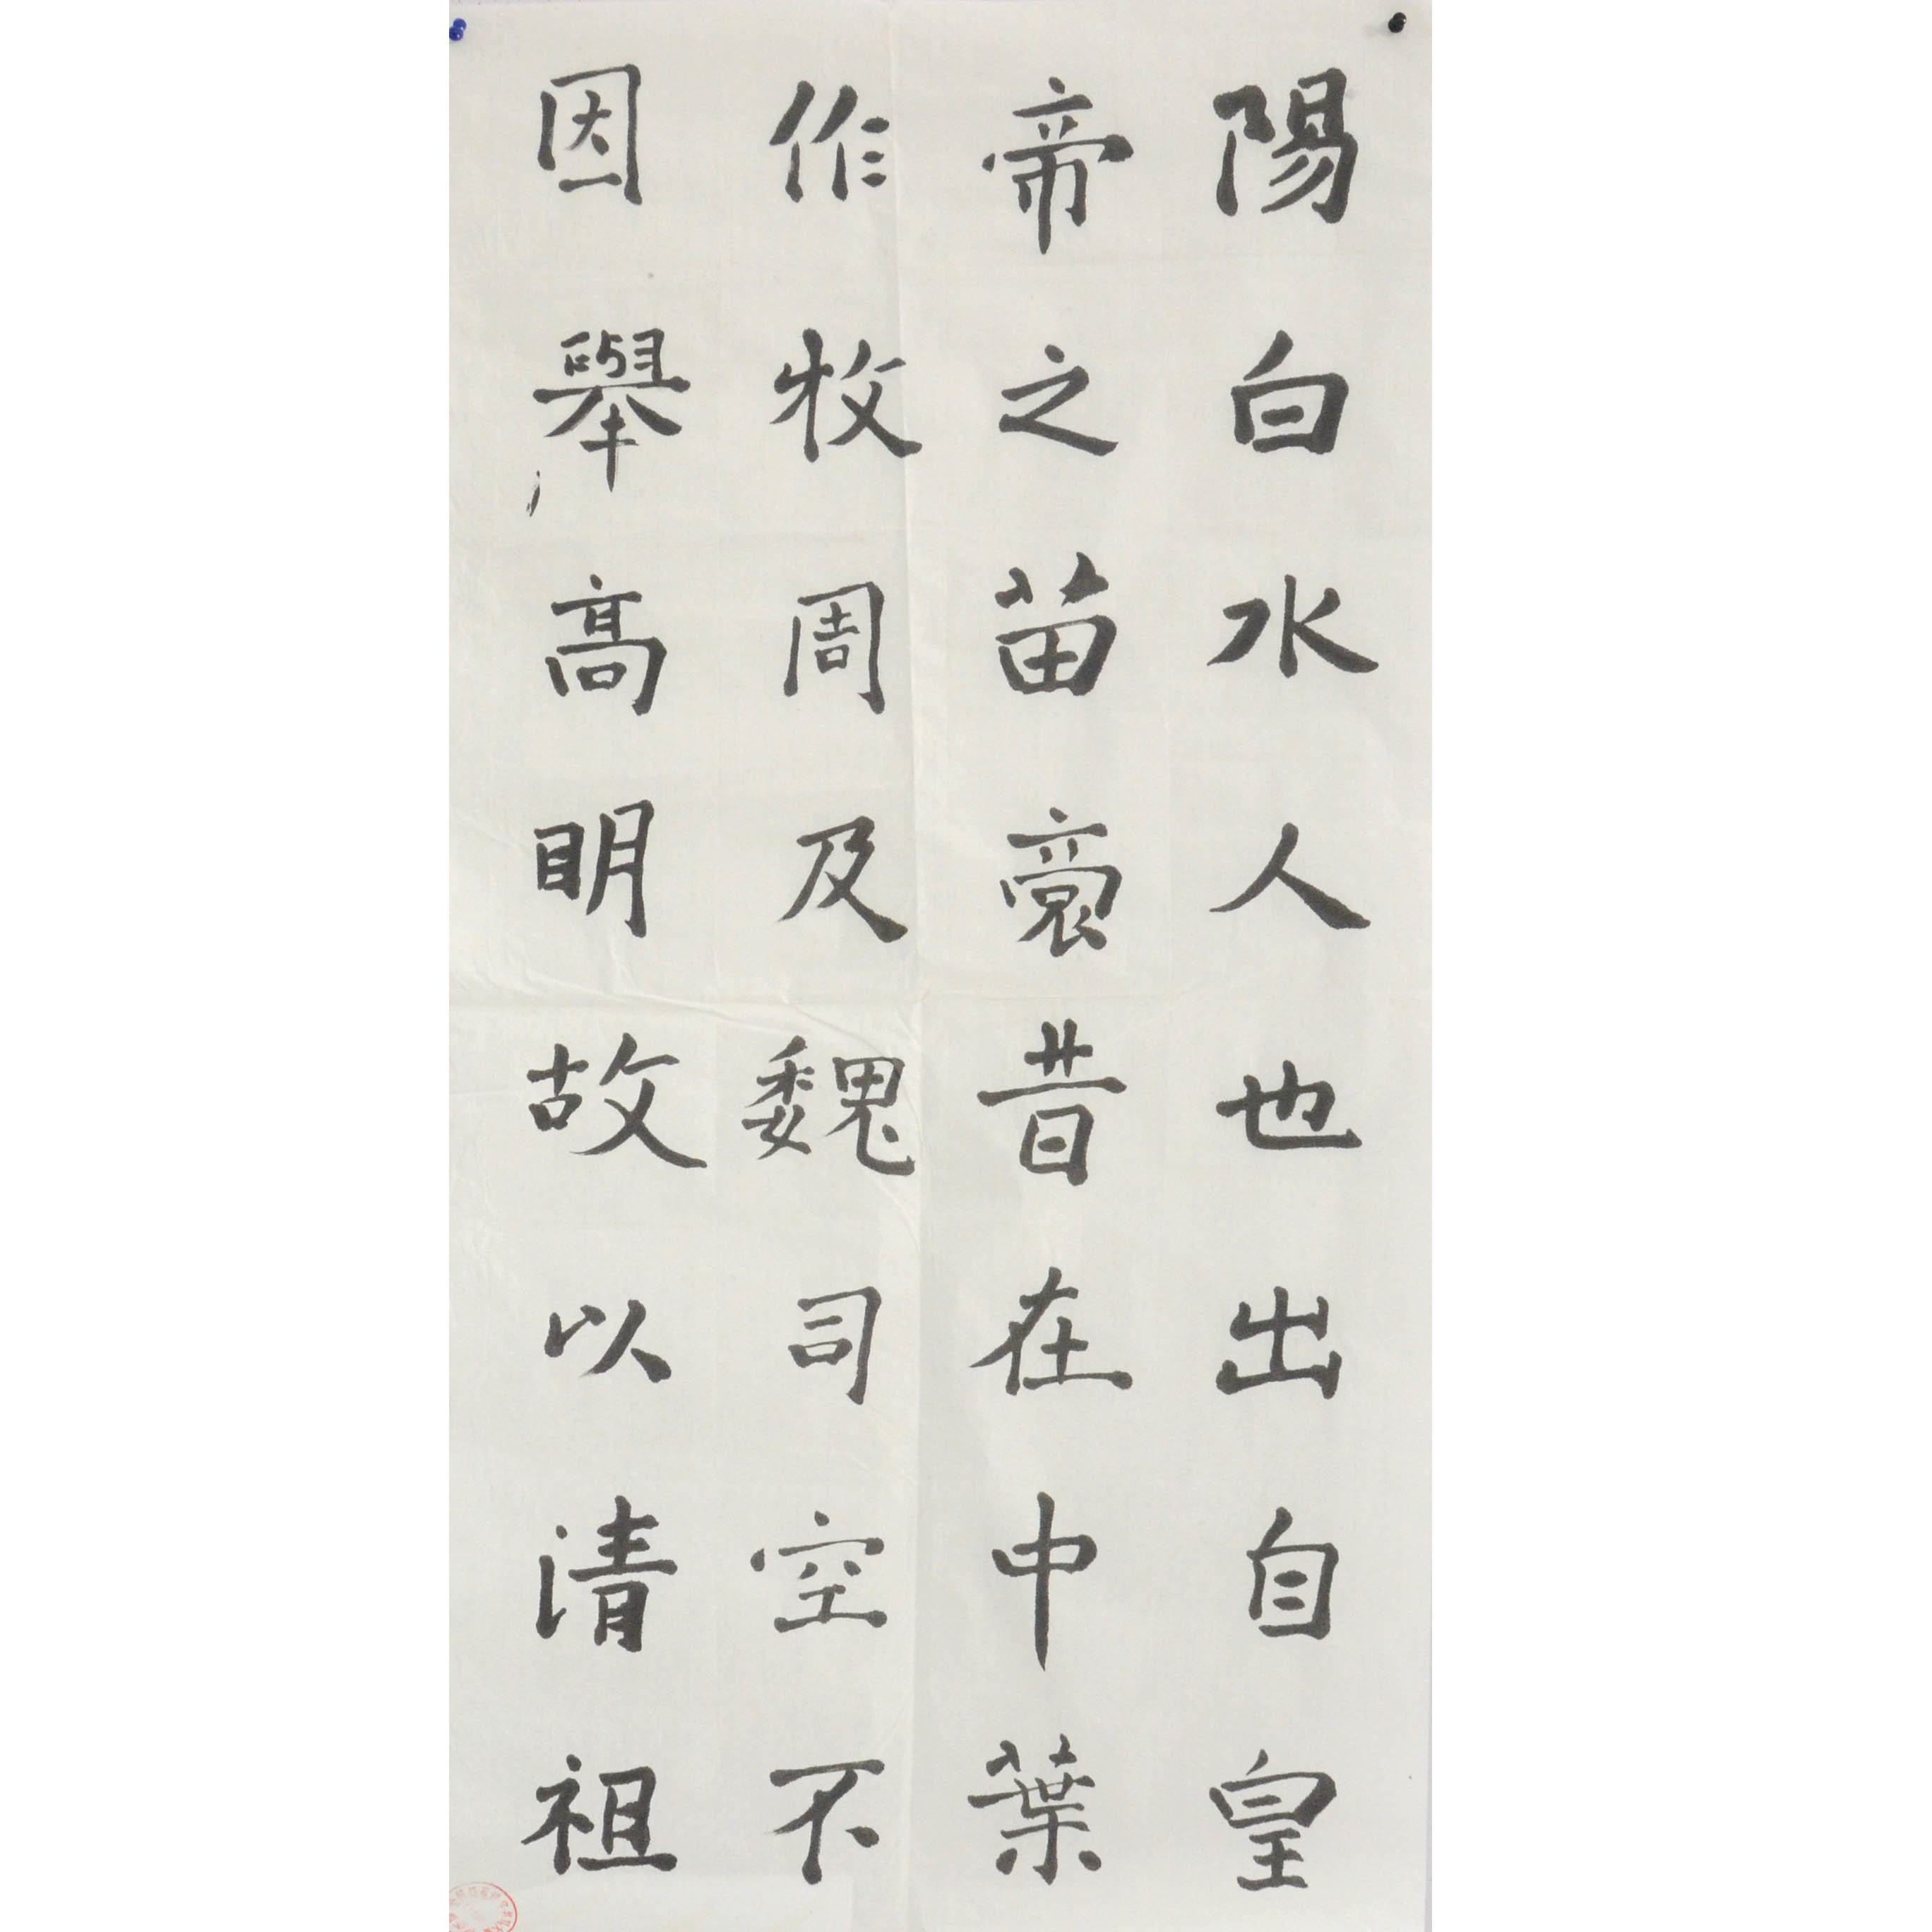 陽白水人也出自皇
帝之苗裔昔在中葉
作牧周及魏司空不
因舉高明故以清祖